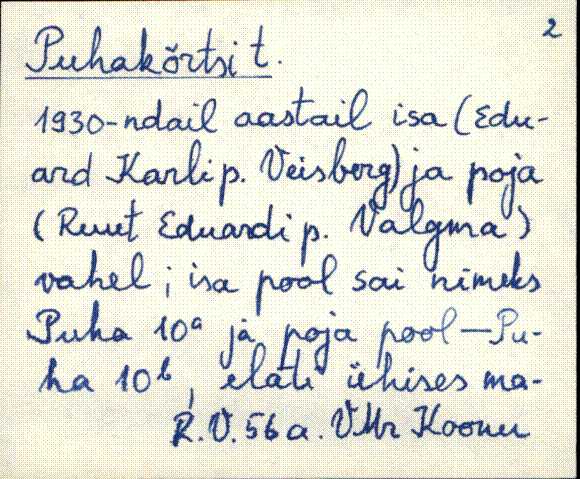 2
Puhakõrtsi t.
1930-ndail aastail isa (Edu-
ard Karli p. Veisberg) ja poja
(Ruut Eduardi p. Valgma)
vahel; isa pool sai nimeks
Puha 10ᵃ ja poja pool—Pu-
ha 10ᵇ, elati ühises ma-
R.V. 56 a. VMr Koonu